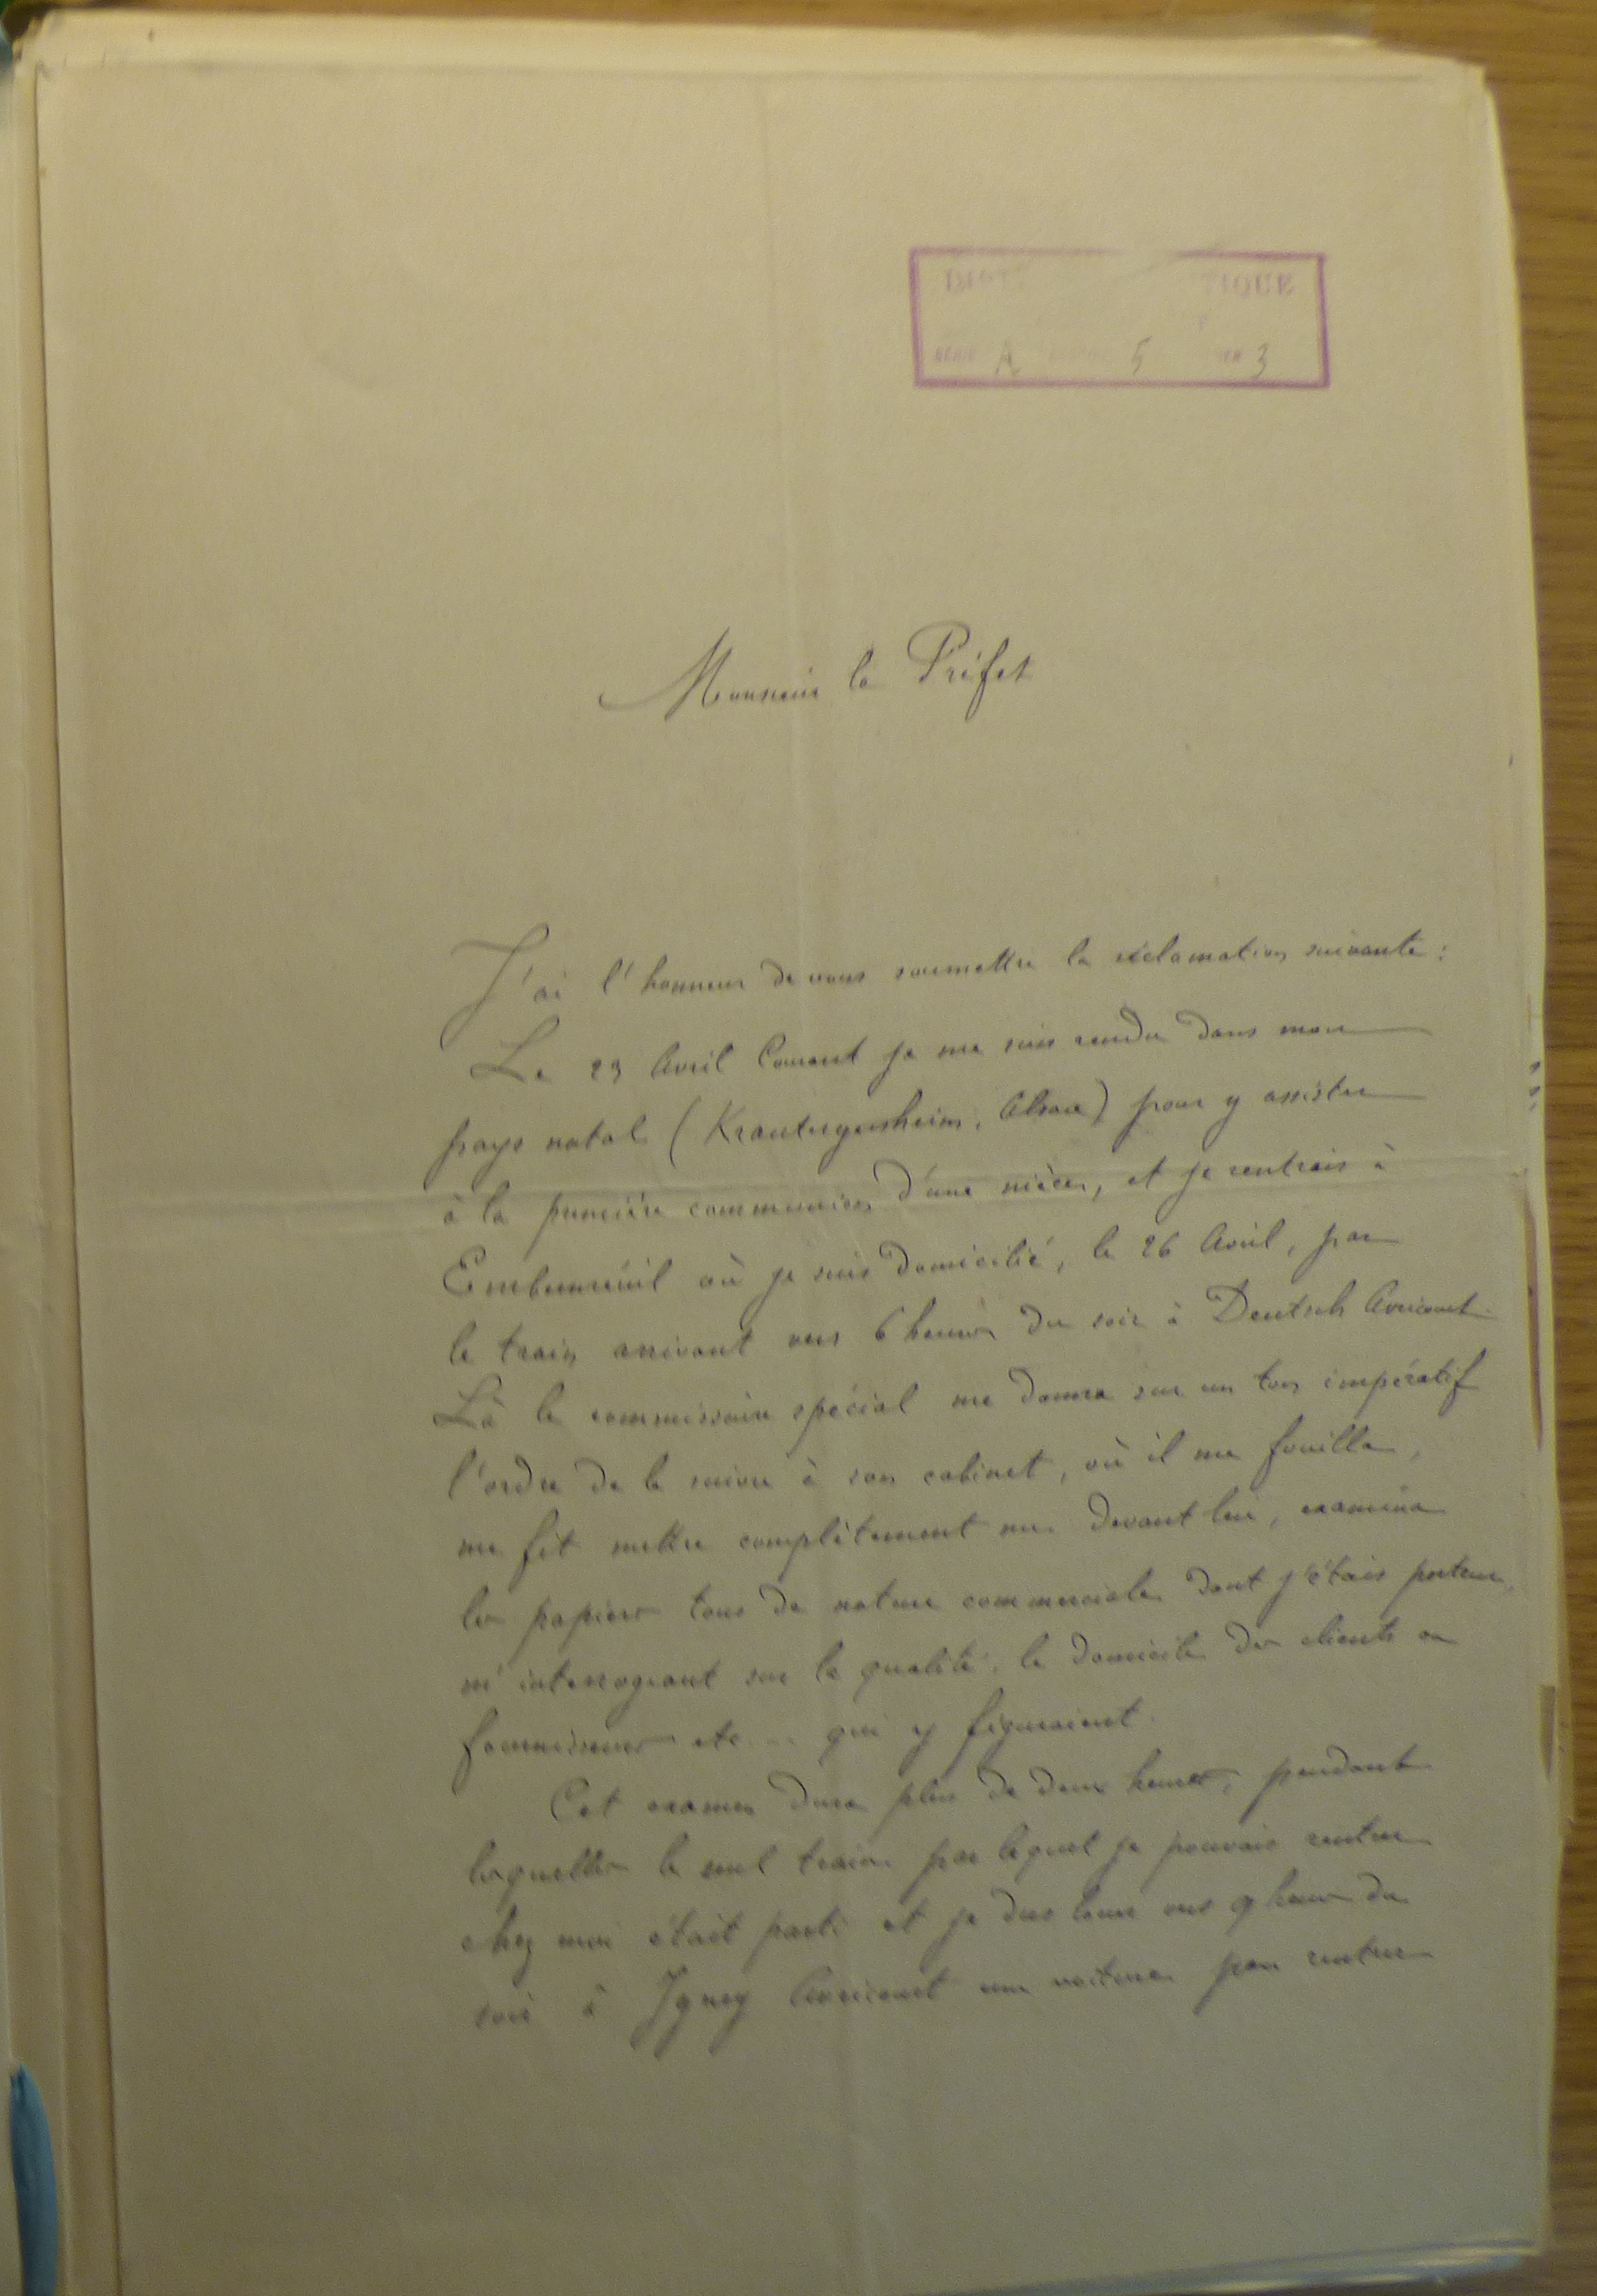 TIQUE
A 5 3
Monsieur le Préfet
J'ai l'honneur de vous soumettre la réclamation suivante :
Le 23 Avril Courant je me suis rendu dans mon
pays natal (Krautergersheim, Alsace) pour y assister
à la première communion d'une nièce, et je rentrais à
Emberménil où je suis domicilié, le 26 Avril, par
le train arrivant vers 6 heures du soir à Deutsch Avricourt
Là le commissaire spécial me donna sur un ton impératif
l'ordre de le suivre à son cabinet, où il me fouilla,
me fit mettre complètement nu devant lui, examina
les papiers tous de nature commerciale dont j'étais porteur,
m'interrogeant sur la qualité, le domicile des clients ou
fournisseurs etc... qui y figuraient.
Cet examen dura plus de deux heures, pendant
lesquelles le seul train par lequel je pouvais rentrer
chez moi était parti et je dus louer vers 9 heures du
soir à Igney Avricourt une voiture pour rentrer